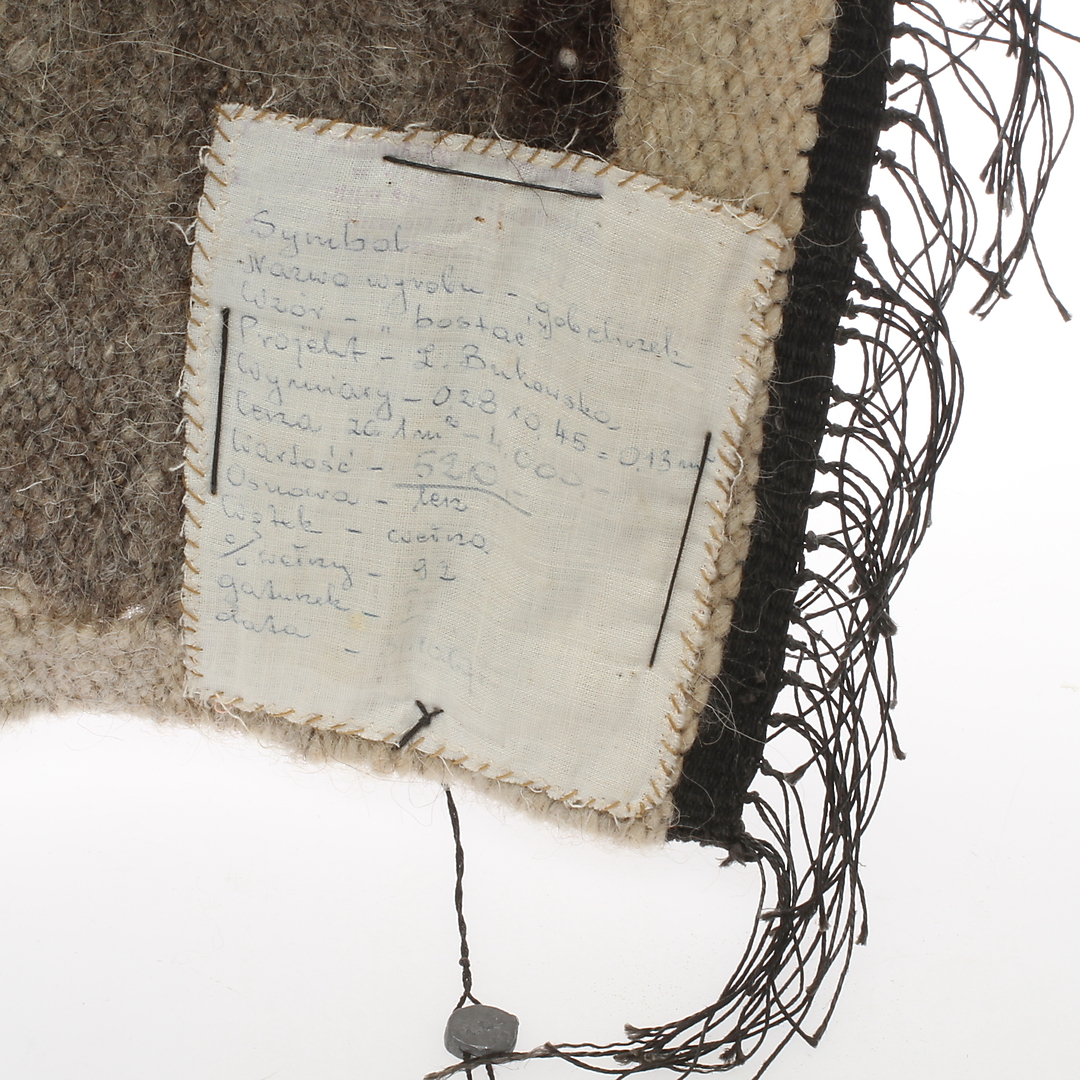 Symbol
Nazwa wyrobu - gobelinek
Wzór - "bostać"
Projekt - Z. Bukowska
Wymiary - 028 x 0,45 = 0,13 m²
Cena za 1m² - 4,000,-
Wartość - 520,-
Osnowa - len
Wątek - wełna
% wełny - 92
gatunek -
data -